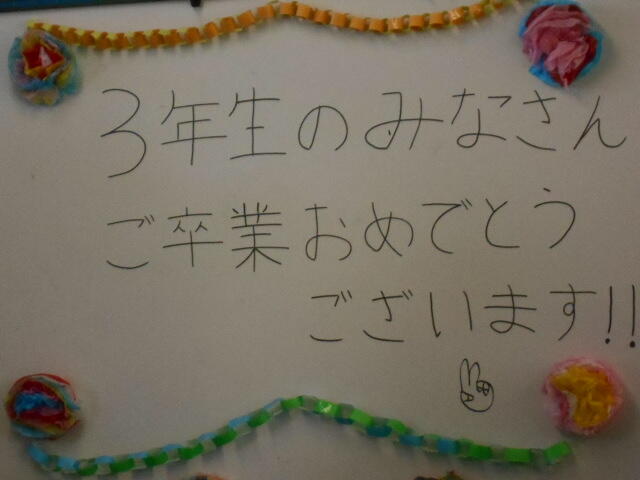 3年生のみなさん
ご卒業おめでとう
ございます!!